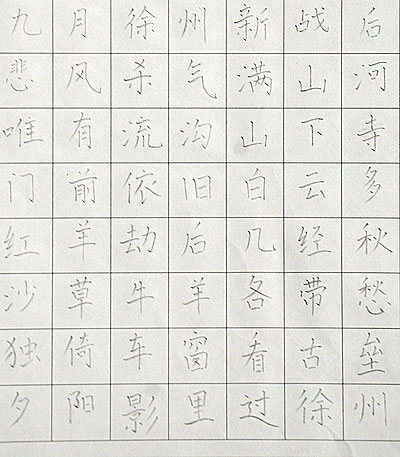 九月徐州新战后
悲风杀气满山河
唯有流沟山下寺
门前依旧白云多
红羊劫后几经秋
沙草牛羊各带愁
独倚车窗看古垒
夕阳影里过徐州